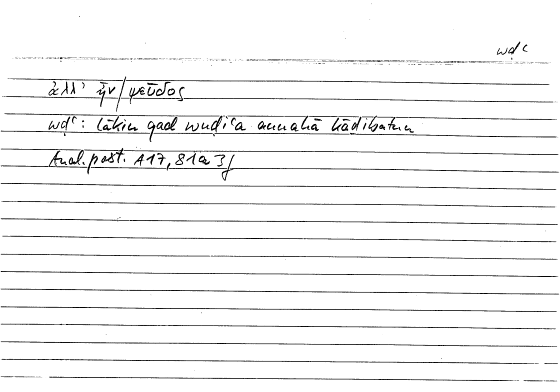 wḍʿ
ἀλλ' ἦν / ψεῦδος
wḍʿ : lākin qad wuḍiʿa annahā kāḏibatun
Anal. post. A 17, 81a 3f